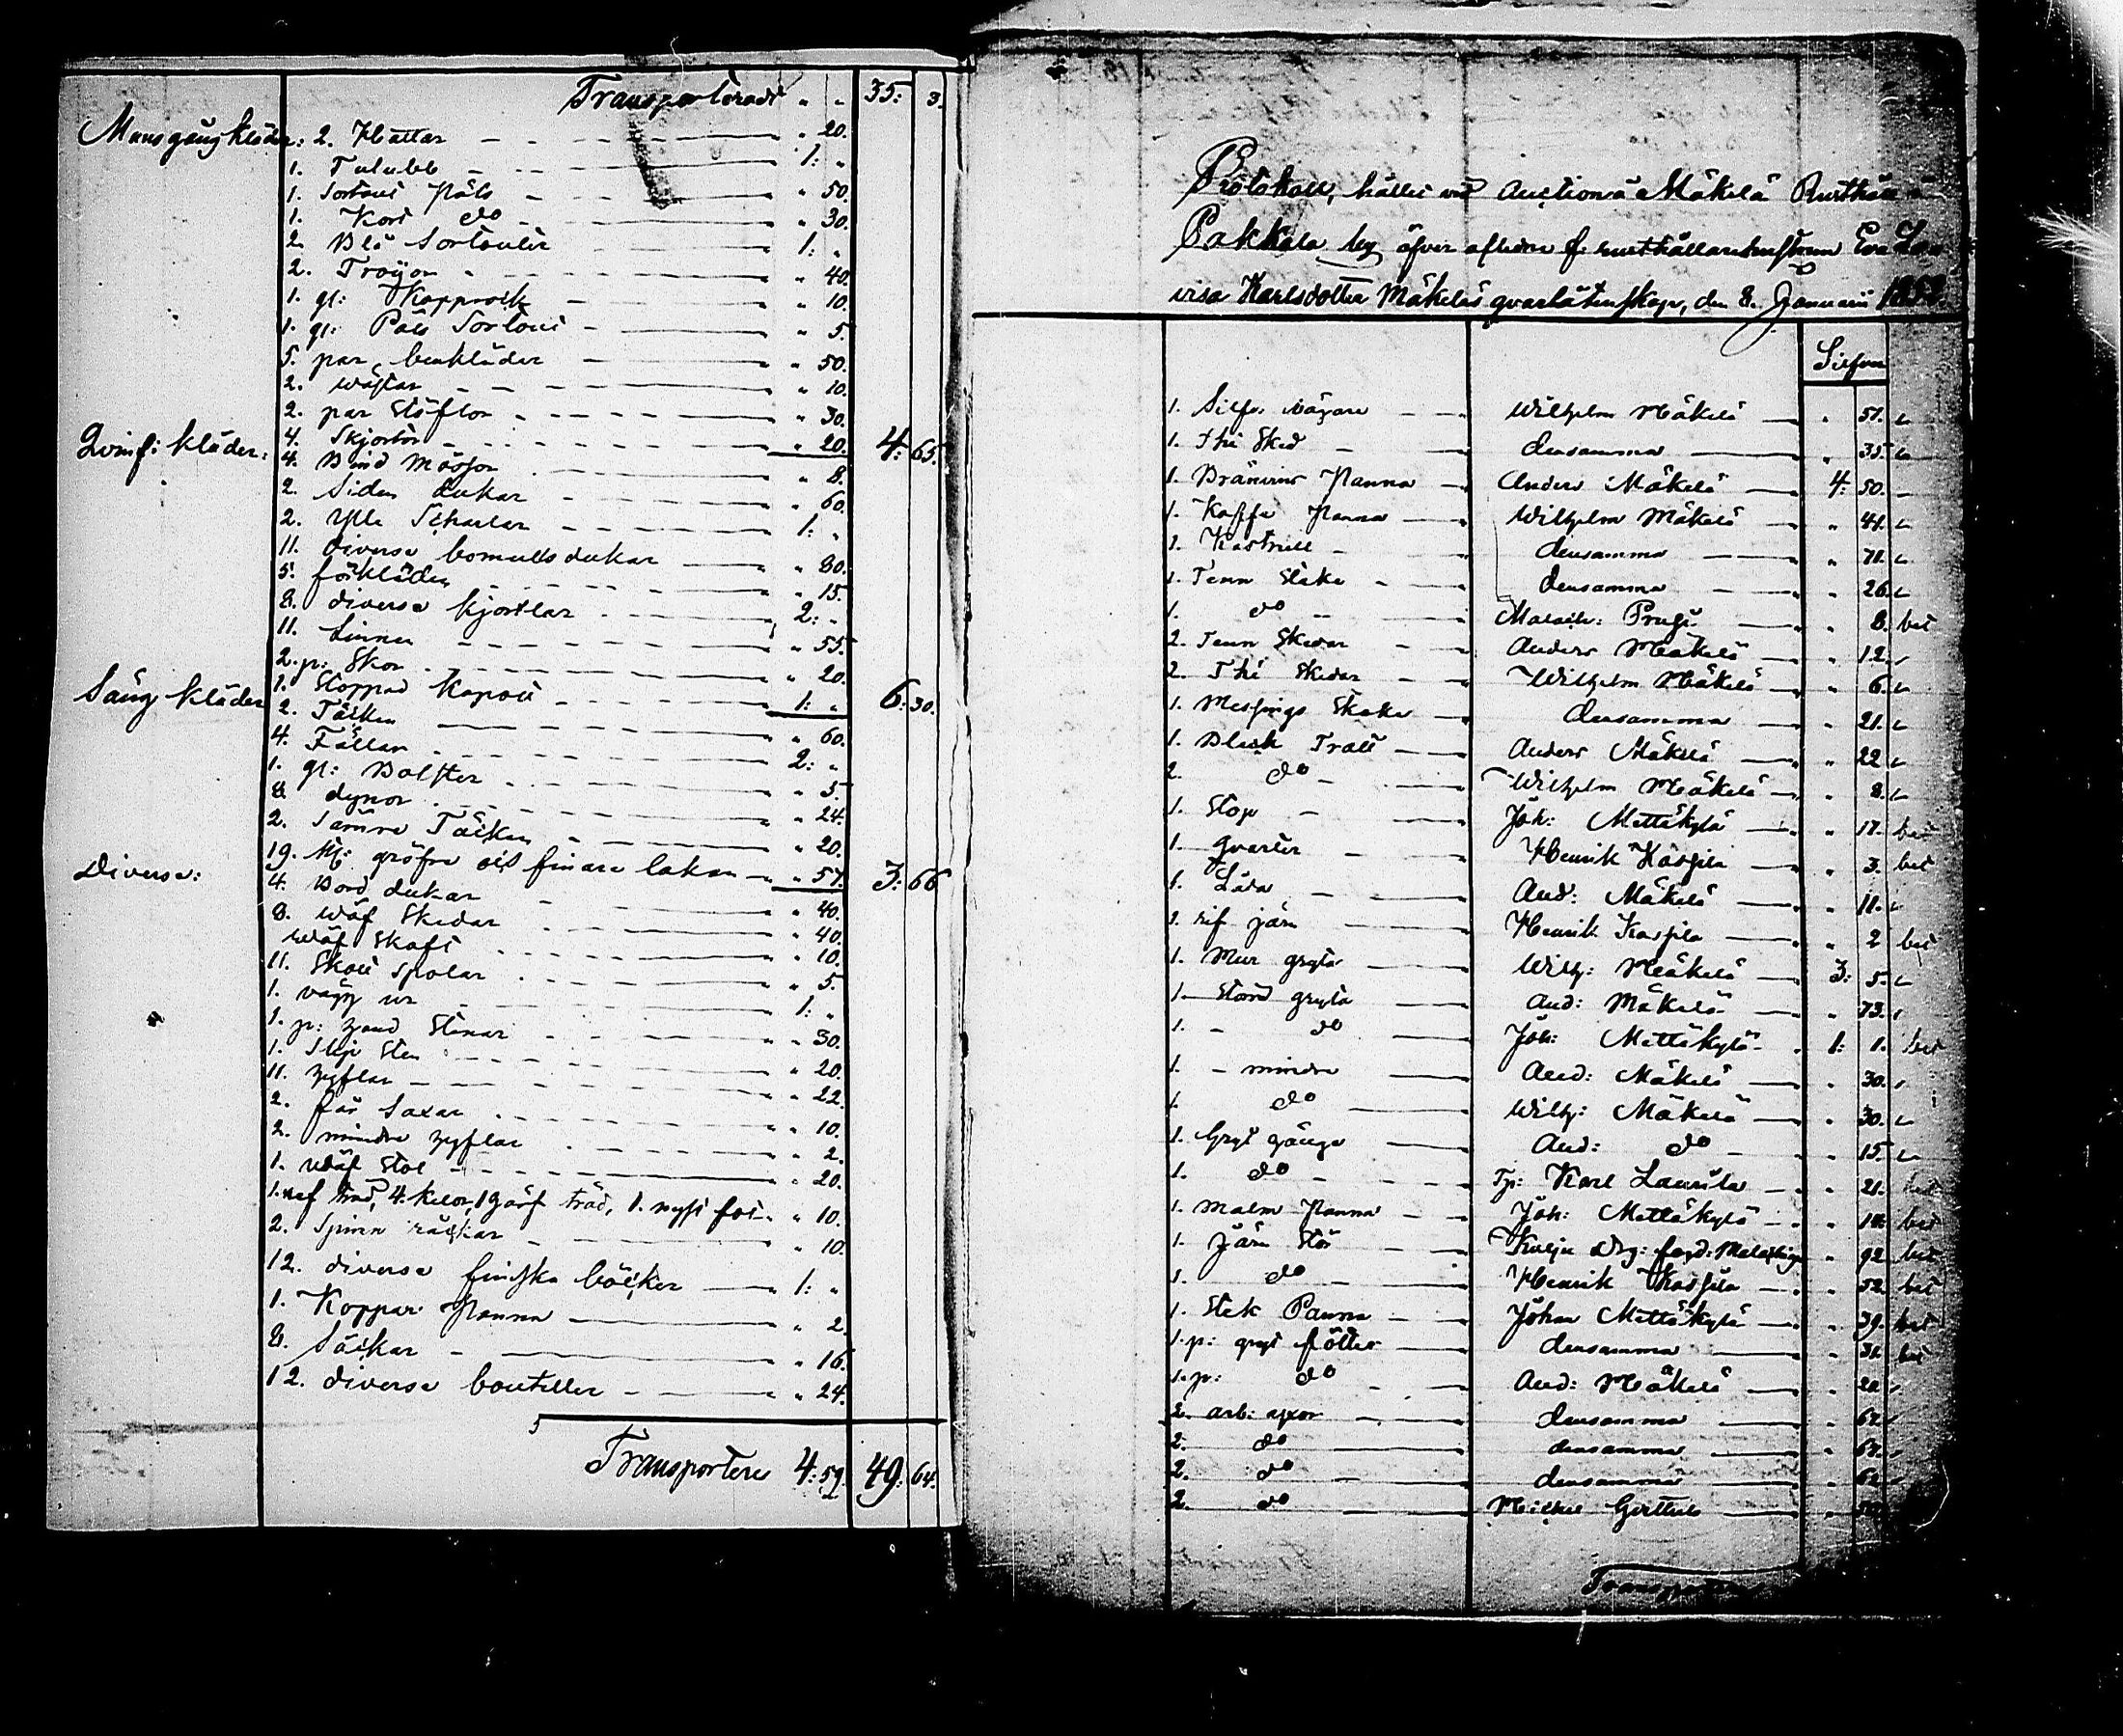 Transporterade " " 35: 3.
Mansgångkläder: 2. Hattar " 20.
1. Tulubb 1: "
1. Sortout Päls " 50.
1. Kort do " 30.
2. Blå Sortouter 1: "
2. Tröjor " 40.
1. gl: Kapprock " 10.
1. gl: Päls Sortout " 5.
5. par benkläder " 50.
2. wästar " 10.
2. par Stöflor " 30.
4. Skjortor " 20. 4: 65.
Qvinf: kläder: 4. Bind Mössor " 8.
2. Siden dukar " 60.
2. Ylle Scharlar 1: "
11. diverse bomullsdukar " 80.
5. förkläden " 15.
8. diverse kjortlar 2: "
11. Linnen " 55.
2. p: Skor " 20.
1. Stoppad Kapott 1: " 6: 30.
Säng kläder 2. Täcken " 60.
4. Fällar 2: "
1. gl: Bolster " 5.
8. dynor " 24.
2. Sämre Täcken " 20.
19. st: gröfre och finare lakan " 57. 3: 66
Diverse: 4. Bord dukar " 40.
8. wäf Skedar " 40.
wäf Skaft " 10.
11. Skott Spolar " 5.
1. vägg ur 1: "
1. p: hand Stenar " 30.
1. Slip Sten " 20.
11. hyflar " 22.
2. får Saxar " 10.
2. mindre hyflar " 2.
1. wäf Stol " 20.
1. ref träd, 4. kelor, 1 garf träd, 1. nyst fot " 10.
2. Spinn råckar " 10.
12. diverse finska böcker 1: "
1. Koppar Panna " 2.
8. Säckar " 16.
12. diverse bouteller " 24.
Transportere 4: 59. 49: 64.
Protokoll, hållit vid Auction å Mäkelä Rusthåll i
Pakkala by öfver aflidne f. rusthållarehustrun Eva Lo
visa Karlsdotter Mäkeläs qvarlåtenskap, den 8. Januari 1853.
Silfver
1. Silfv. bägare Wilhelm Mäkelä " 51.
1. Thé Sked densamma " 35.
1. Bränvins Panna Anders Mäkelä 4: 50.
1. Kaffe Panna Wilhelm Mäkelä " 41.
1. Kastrull densamma " 71.
1. Tenn Stake densamma " 26.
1. do " 8. bet
2. Tenn Skedar Anders Mäkelä " 12.
2. Thé Skedar Wilhelm Mäkelä " 6.
1. Messings Stake densamma " 21.
1. Bleck Tratt Anders Mäkelä " 22
2. do Wilhelm Mäkelä " 8.
1. Stop Joh: Mettäkylä " 17. bet
1. qvarter Henrik Kaspila " 3. bet
1. Låda And: Mäkelä " 11.
1. rif järn Henrik Kaspila " 2 bet
1. Mur gryta Wilh: Mäkelä 3: 5.
1. Större gryta And: Mäkelä " 73.
1. - do Joh: Mettäkylä 1: 1. bet
1. - mindre And: Mäkelä " 30.
1. do Wilh: Mäkelä " 30.
1. Gryt gånge And: do " 15.
1. do Tp: Karl Laurila " 21. bet
1. Malm Panna Joh: Mettäkylä " 18. bet
1. Järn Stör " 92 bet
1. do Henrik Kaspila " 52 bet
1. Stek Panna Johan Mettäkylä " 39. bet
1. p: gryt fötter densamma " 31. bet
1. p: do And: Mäkelä " 20
2. arb: yxor densamma " 61.
2. do densamma " 61.
2. do densamma " 61.
2. do Michel Gerttula "
Transportere